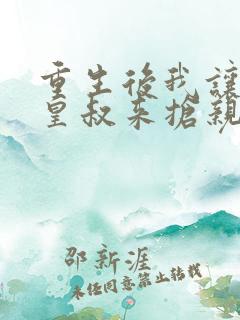 重生後我讓
皇叔來搶親
邵新涯
未經同意禁止轉載